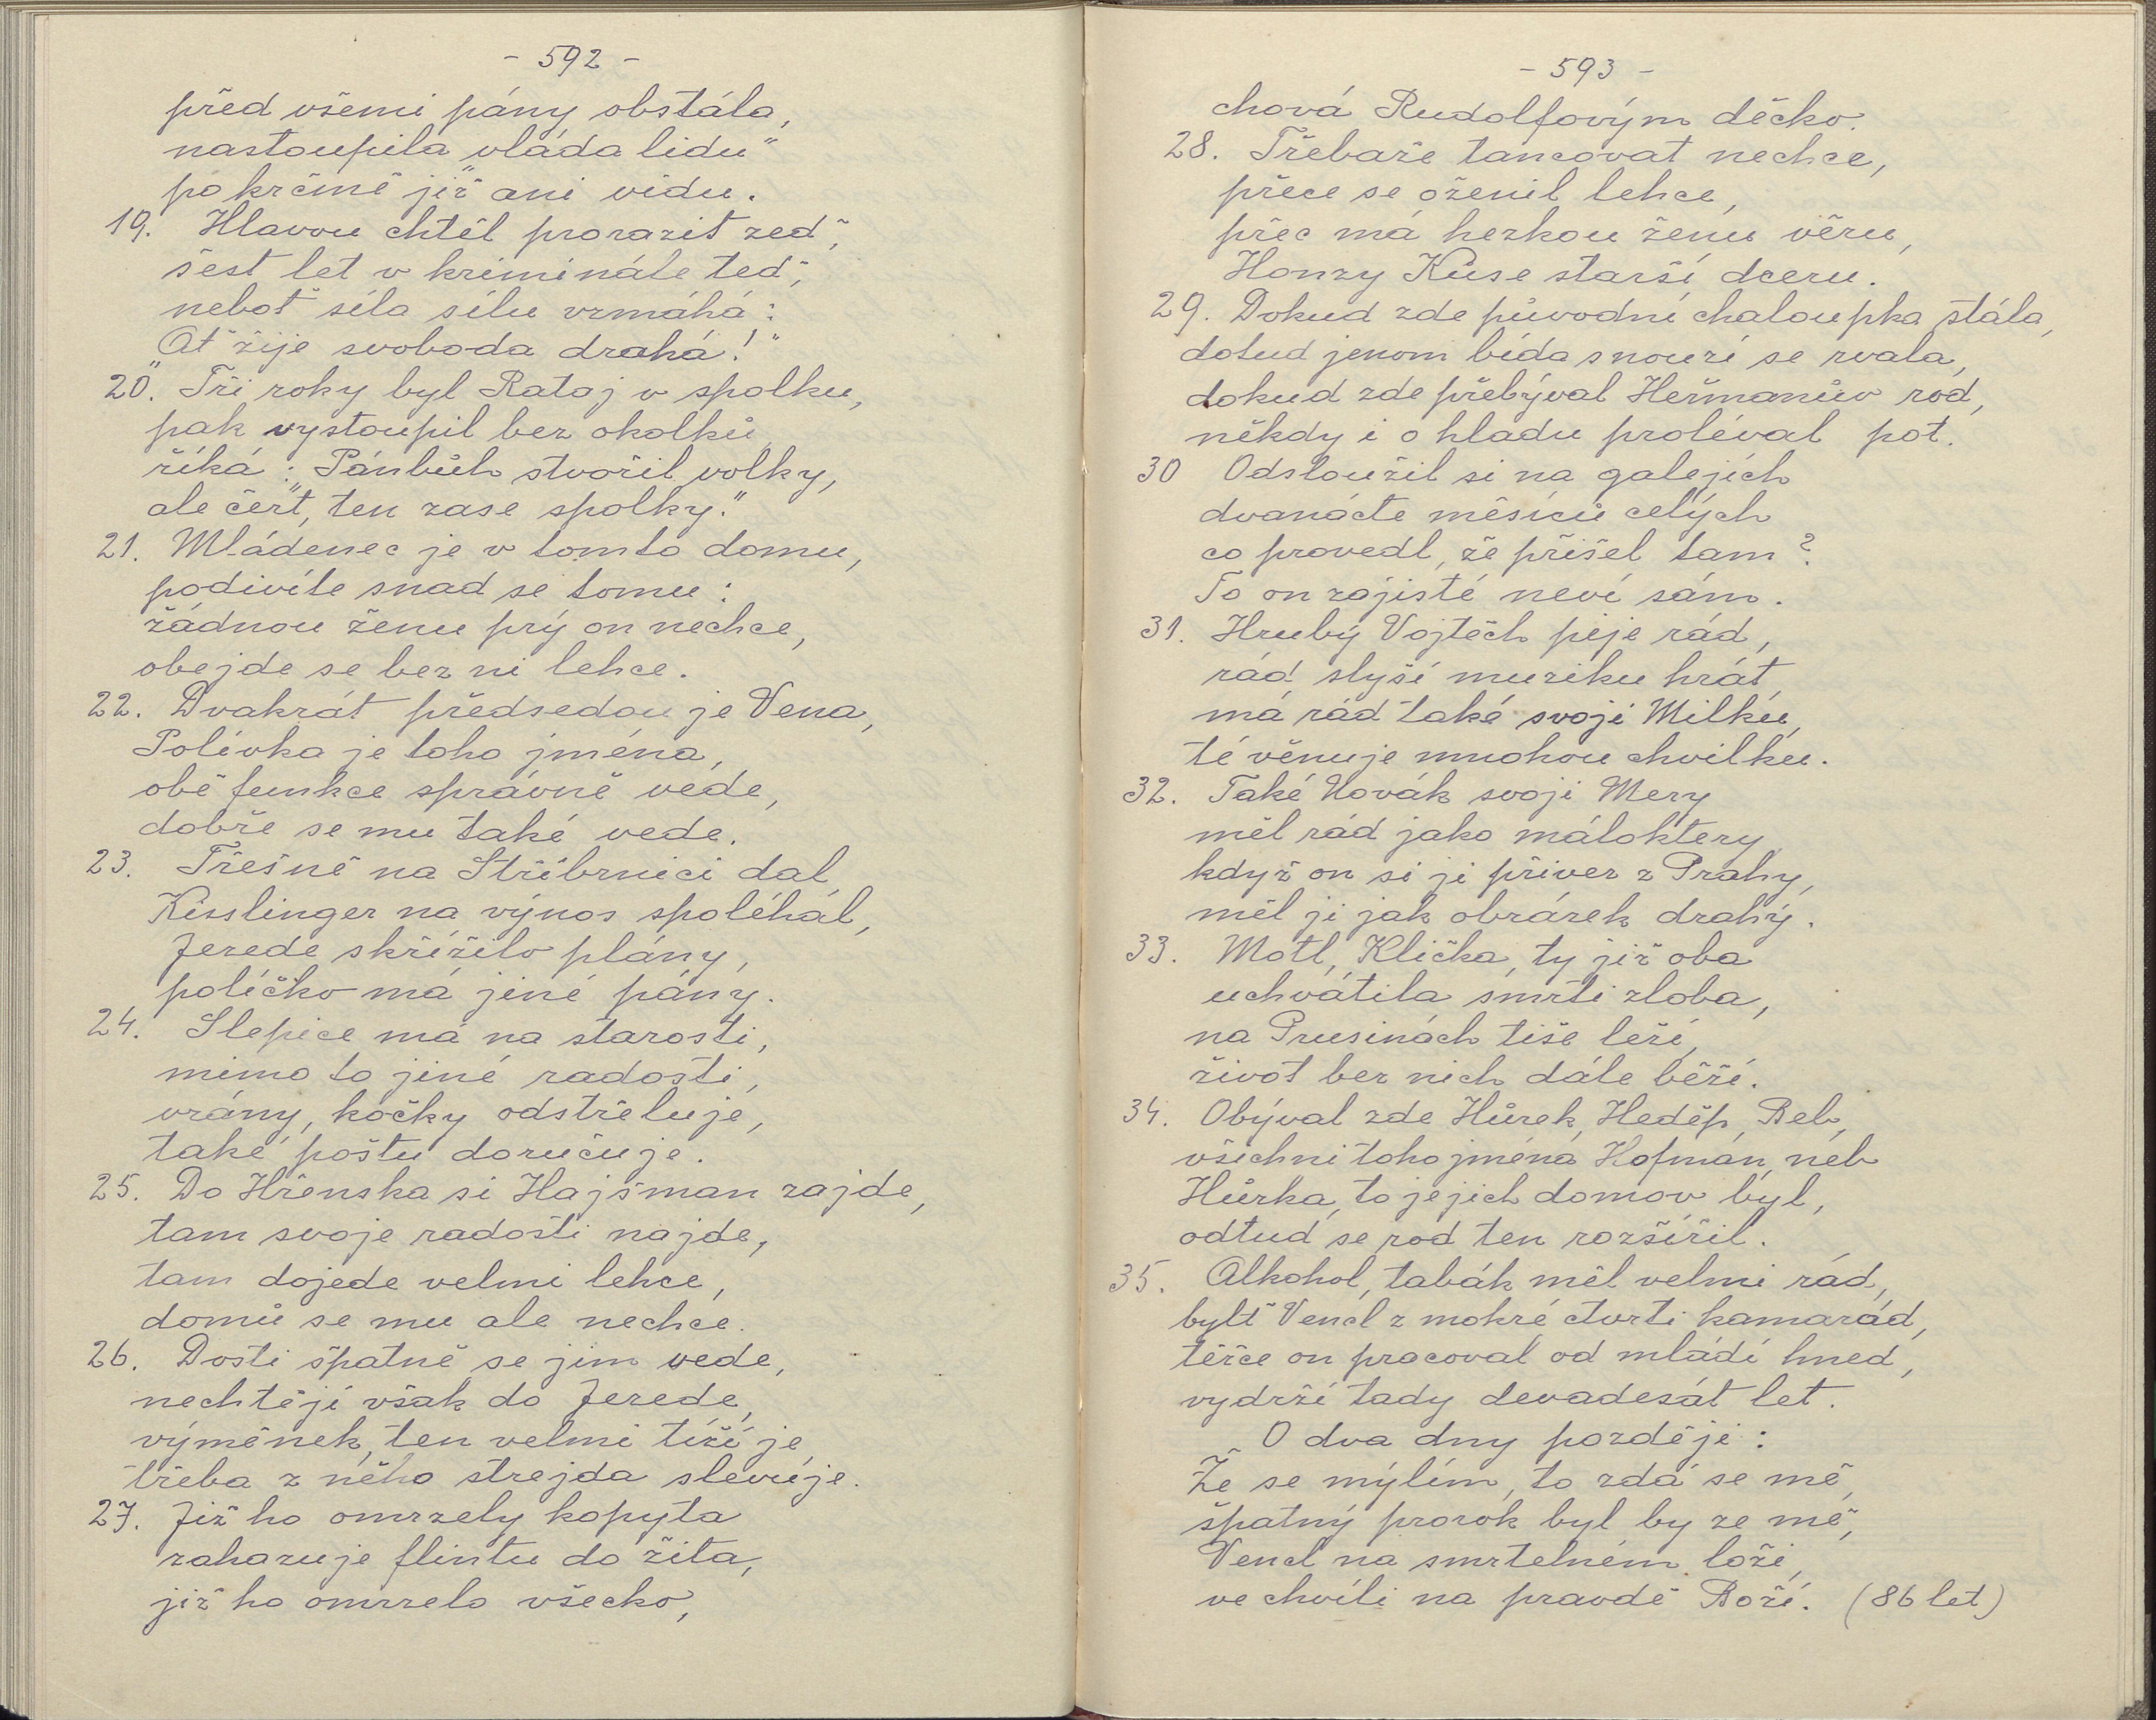 - 592 -
před všemi pány obstála,
nastoupila „vláda lidu"
po krčmě již ani vidu.
19. Hlavou chtěl prorazit zeď,
šest let v kriminále teď,
neboť síla sílu vzmáhá:
„Ať žije svoboda drahá!"
20. Tři roky byl Rataj v spolku,
pak vystoupil bez okolků,
říká: „Pánbůh stvořil volky,
ale čert, ten zase spolky."
21. Mládenec je v tomto domu,
podivíte snad se tomu:
žádnou ženu prý on nechce,
obejde se bez ní lehce.
22. Dvakrát předsedou je Vena,
Polívka je toho jména,
obě funkce správně vede,
dobře se mu také vede.
23. Třešně na Stříbrnici dal,
Kisslinger na výnos spoléhal,
Jezede skřížilo plány,
políčko má jiné pány.
24. Slepice má na starosti,
mimo to jiné radosti,
vrány, kočky odstřeluje,
také poštu doručuje.
25. Do Hřenska si Hajšman zajde,
tam svoje radosti najde,
tam dojede velmi lehce,
domů se mu ale nechce.
26. Dosti špatně se jim vede,
nechtějí však do Jezede,
výměnek, ten velmi tíží je
třeba z něho strejda slevuje.
27. Již ho omrzely kopyta
zahazuje flintu do žita,
již ho omrzelo všecko,
- 593 -
chová Rudolfovým děcko.
28. Třebaže tancovat nechce,
přece se oženil lehce,
přec má hezkou ženu věru,
Honzy Kůse starší dceru.
29. Dokud zde původní chaloupka stála,
dotud jenom bída s nouzí se rvala,
dokud zde přebýval Heřmanův rod,
někdy i o hladu proléval pot.
30 Odsloužil si na galejích
dvanácte měsíců celých
co provedl, že přišel tam?
To on zajisté neví sám.
31. Hrubý Vojtěch pěje rád,
rád slyší muziku hrát,
má rád také svoji Milku,
té věnuje mnohou chvilku.
32. Také Novák svoji Mery
měl rád jako málokterý,
když on si ji přivez z Prahy,
měl ji jak obrázek drahý.
33. Motl, Klička, ty již oba
uchvátila smrti zloba,
na Prusinách tiše leží,
život bez nich dále běží.
34. Obýval zde Hůrek, Heděp, Beb,
všichni toho jména Hofman, neb
Hůrka, to jejich domov byl,
odtud se rod ten rozšířil.
35. Alkohol, tabák měl velmi rád,
bylť Vencl z mokré čtvrti kamarád,
těžce on pracoval od mládí hned,
vydrží tady devadesát let.
O dva dny později:
Že se mýlím, to zdá se mě,
špatný prorok byl by ze mě,
Vencl na smrtelném loži,
ve chvíli na pravdě Boží. (86 let)